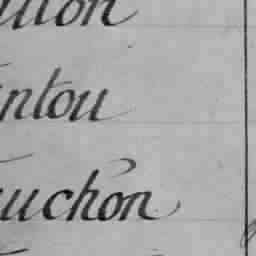 ulon
ntou
uchon